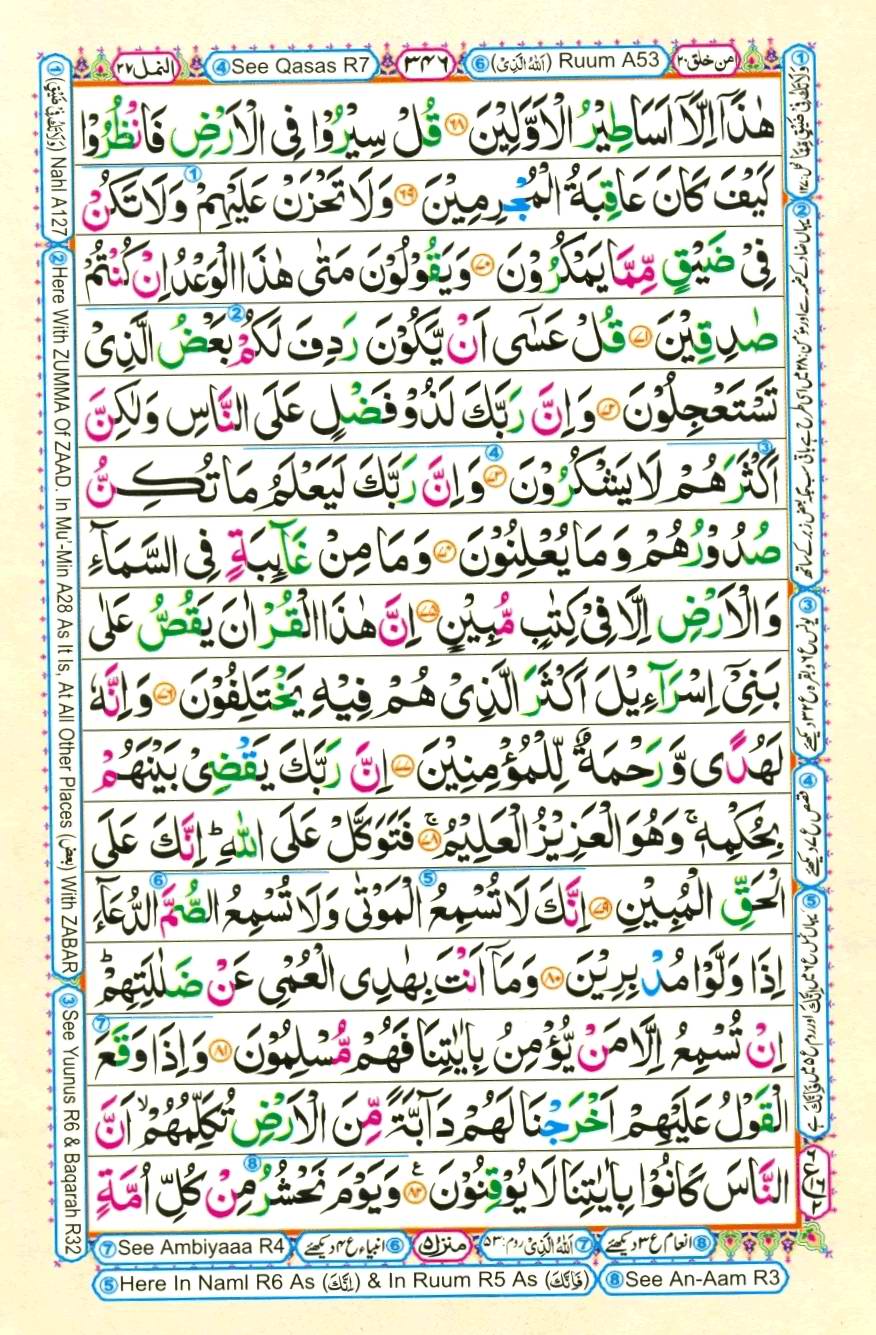 النمل ٢٧
④ See Qasas R7
٣٤٦
⑥ (اَللهُ الَّذِیْ) Ruum A53
امن خلق ٢٠
هٰذَاۤ اِلَّاۤ اَسَاطِیْرُ الْاَوَّلِیْنَ ﴿۶۸﴾ قُلْ سِیْرُوْا فِی الْاَرْضِ فَانْظُرُوْا
كَیْفَ كَانَ عَاقِبَةُ الْمُجْرِمِیْنَ ﴿۶۹﴾ وَلَا تَحْزَنْ عَلَیْهِمْ وَلَا تَكُنْ
فِیْ ضَیْقٍ مِّمَّا یَمْكُرُوْنَ ﴿۷۰﴾ وَیَقُوْلُوْنَ مَتٰی هٰذَا الْوَعْدُ اِنْ كُنْتُمْ
صٰدِقِیْنَ ﴿۷۱﴾ قُلْ عَسٰۤی اَنْ یَّكُوْنَ رَدِفَ لَكُمْ بَعْضُ الَّذِیْ
تَسْتَعْجِلُوْنَ ﴿۷۲﴾ وَاِنَّ رَبَّكَ لَذُوْ فَضْلٍ عَلَی النَّاسِ وَلٰكِنَّ
اَكْثَرَهُمْ لَا یَشْكُرُوْنَ ﴿۷۳﴾ وَاِنَّ رَبَّكَ لَیَعْلَمُ مَا تُكِنُّ
صُدُوْرُهُمْ وَمَا یُعْلِنُوْنَ ﴿۷۴﴾ وَمَا مِنْ غَآئِبَةٍ فِی السَّمَآءِ
وَالْاَرْضِ اِلَّا فِیْ كِتٰبٍ مُّبِیْنٍ ﴿۷۵﴾ اِنَّ هٰذَا الْقُرْاٰنَ یَقُصُّ عَلٰی
بَنِیْۤ اِسْرَآءِیْلَ اَكْثَرَ الَّذِیْ هُمْ فِیْهِ یَخْتَلِفُوْنَ ﴿۷۶﴾ وَاِنَّهٗ
لَهُدًی وَّرَحْمَةٌ لِّلْمُؤْمِنِیْنَ ﴿۷۷﴾ اِنَّ رَبَّكَ یَقْضِیْ بَیْنَهُمْ
بِحُكْمِهٖ ۚ وَهُوَ الْعَزِیْزُ الْعَلِیْمُ ﴿۷۸﴾ ۚ فَتَوَكَّلْ عَلَی اللّٰهِ ؕ اِنَّكَ عَلَی
الْحَقِّ الْمُبِیْنِ ﴿۷۹﴾ اِنَّكَ لَا تُسْمِعُ الْمَوْتٰی وَلَا تُسْمِعُ الصُّمَّ الدُّعَآءَ
اِذَا وَلَّوْا مُدْبِرِیْنَ ﴿۸۰﴾ وَمَاۤ اَنْتَ بِهٰدِی الْعُمْیِ عَنْ ضَلٰلَتِهِمْ ؕ
اِنْ تُسْمِعُ اِلَّا مَنْ یُّؤْمِنُ بِاٰیٰتِنَا فَهُمْ مُّسْلِمُوْنَ ﴿۸۱﴾ وَاِذَا وَقَعَ
الْقَوْلُ عَلَیْهِمْ اَخْرَجْنَا لَهُمْ دَآبَّةً مِّنَ الْاَرْضِ تُكَلِّمُهُمْ ۙ اَنَّ
النَّاسَ كَانُوْا بِاٰیٰتِنَا لَا یُوْقِنُوْنَ ﴿۸۲﴾ ع وَیَوْمَ نَحْشُرُ مِنْ كُلِّ اُمَّةٍ
① (وَلَا تَكُ فِیْ ضَیْقٍ) Nahl A127
② Here With ZUMMA Of ZAAD, In Mu'-Min A28 As It Is, At All Other Places (بعض) With ZABAR
③ See Yuunus R6 & Baqarah R32
③ یونس ع ٦ و بقرہ ع ٣٢ دیکھئے
④ قصص ع ٧ دیکھئے
⑦ See Ambiyaaa R4
⑥ انبیاء ع ۴ دیکھئے
منزل ۵
⑦ اَللهُ الَّذِیْ روم: ۵۳
⑧ انعام ع ٣ دیکھئے
⑤ Here In Naml R6 As (اِنَّكَ) & In Ruum R5 As (فَاِنَّكَ)
⑧ See An-Aam R3